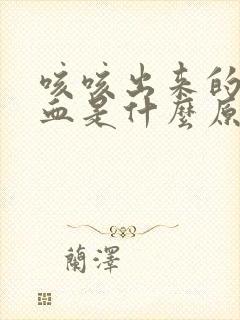 咳咳出来的
血是什麼原
蘭澤